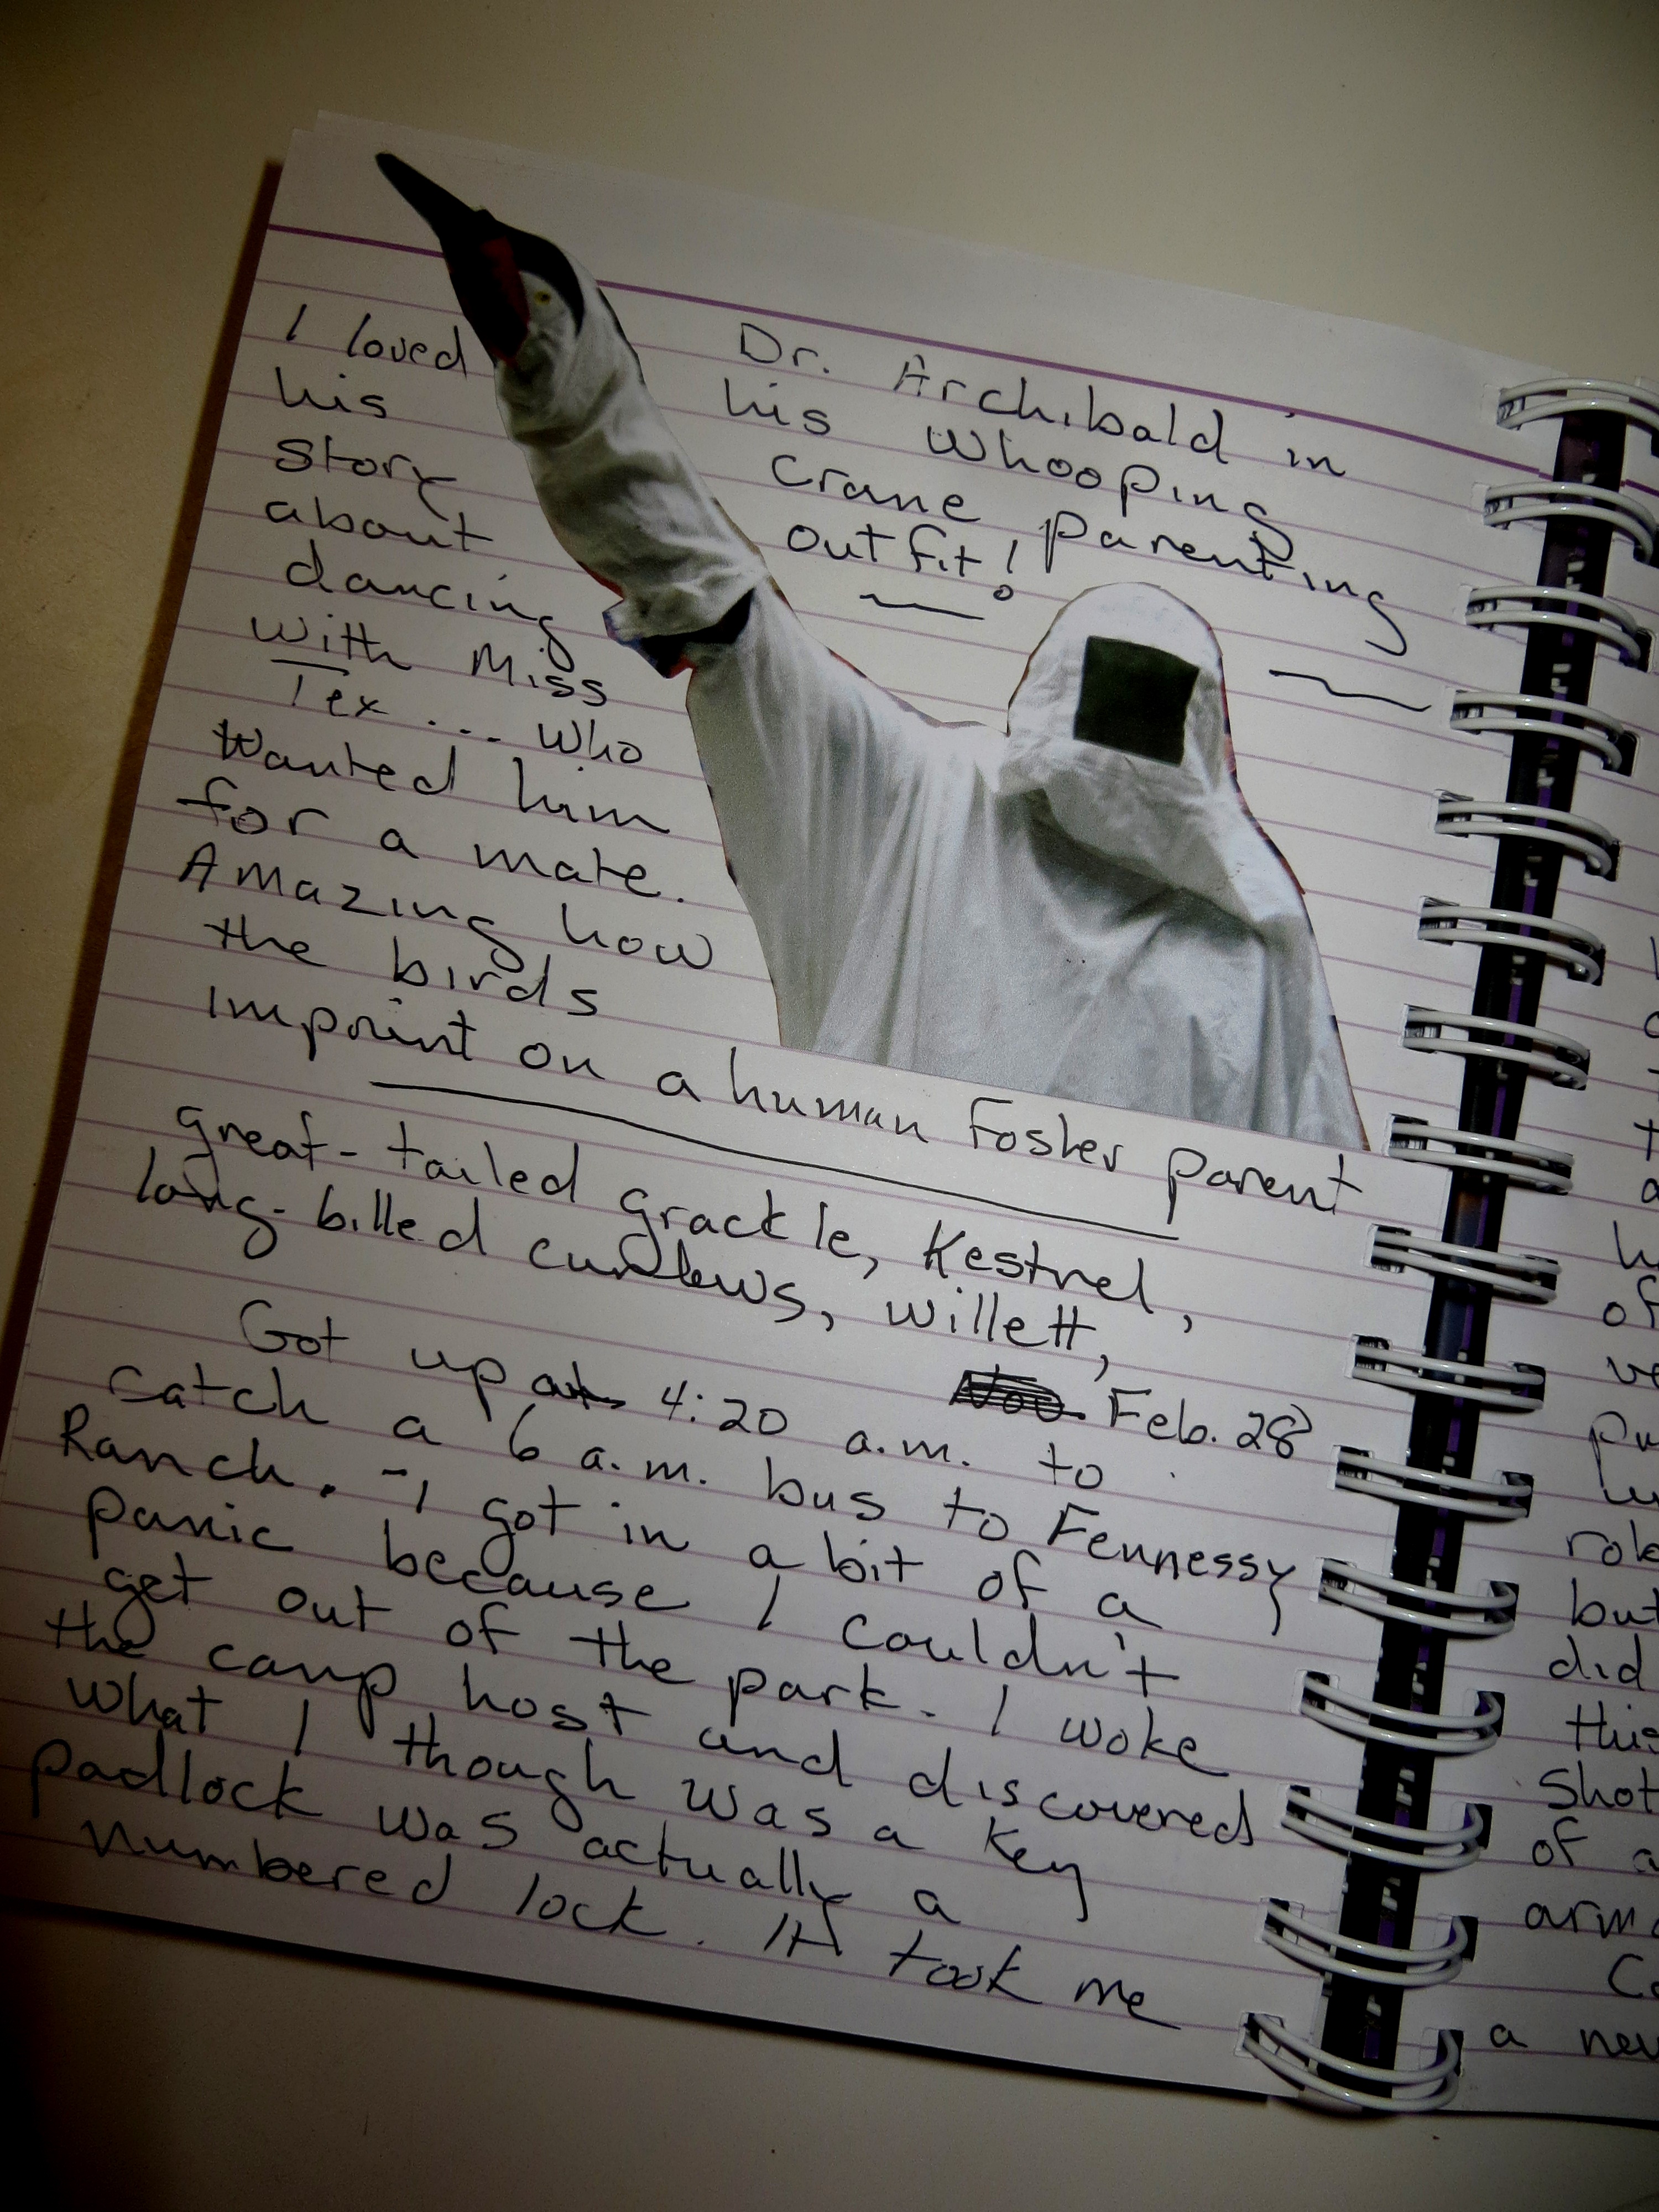 I loved
his
story
about
dancing
with Miss
Tex .... who
wanted him
for a mate.
Amazing how
the birds
imprint on a human Foster parent
Dr. Archibald in
his whooping
crane parenting
outfit!
great-tailed grackle, Kestrel,
long-billed curlews, willett,
Feb. 28
Got up at 4:20 a.m. to
catch a 6 a.m. bus to Fennessy
Ranch. - I got in a bit of a
panic because I couldn't
get out of the park. I woke
the camp host and discovered
what I though was a key
padlock was actually a
numbered lock. It took me
of
but
did
of a
a